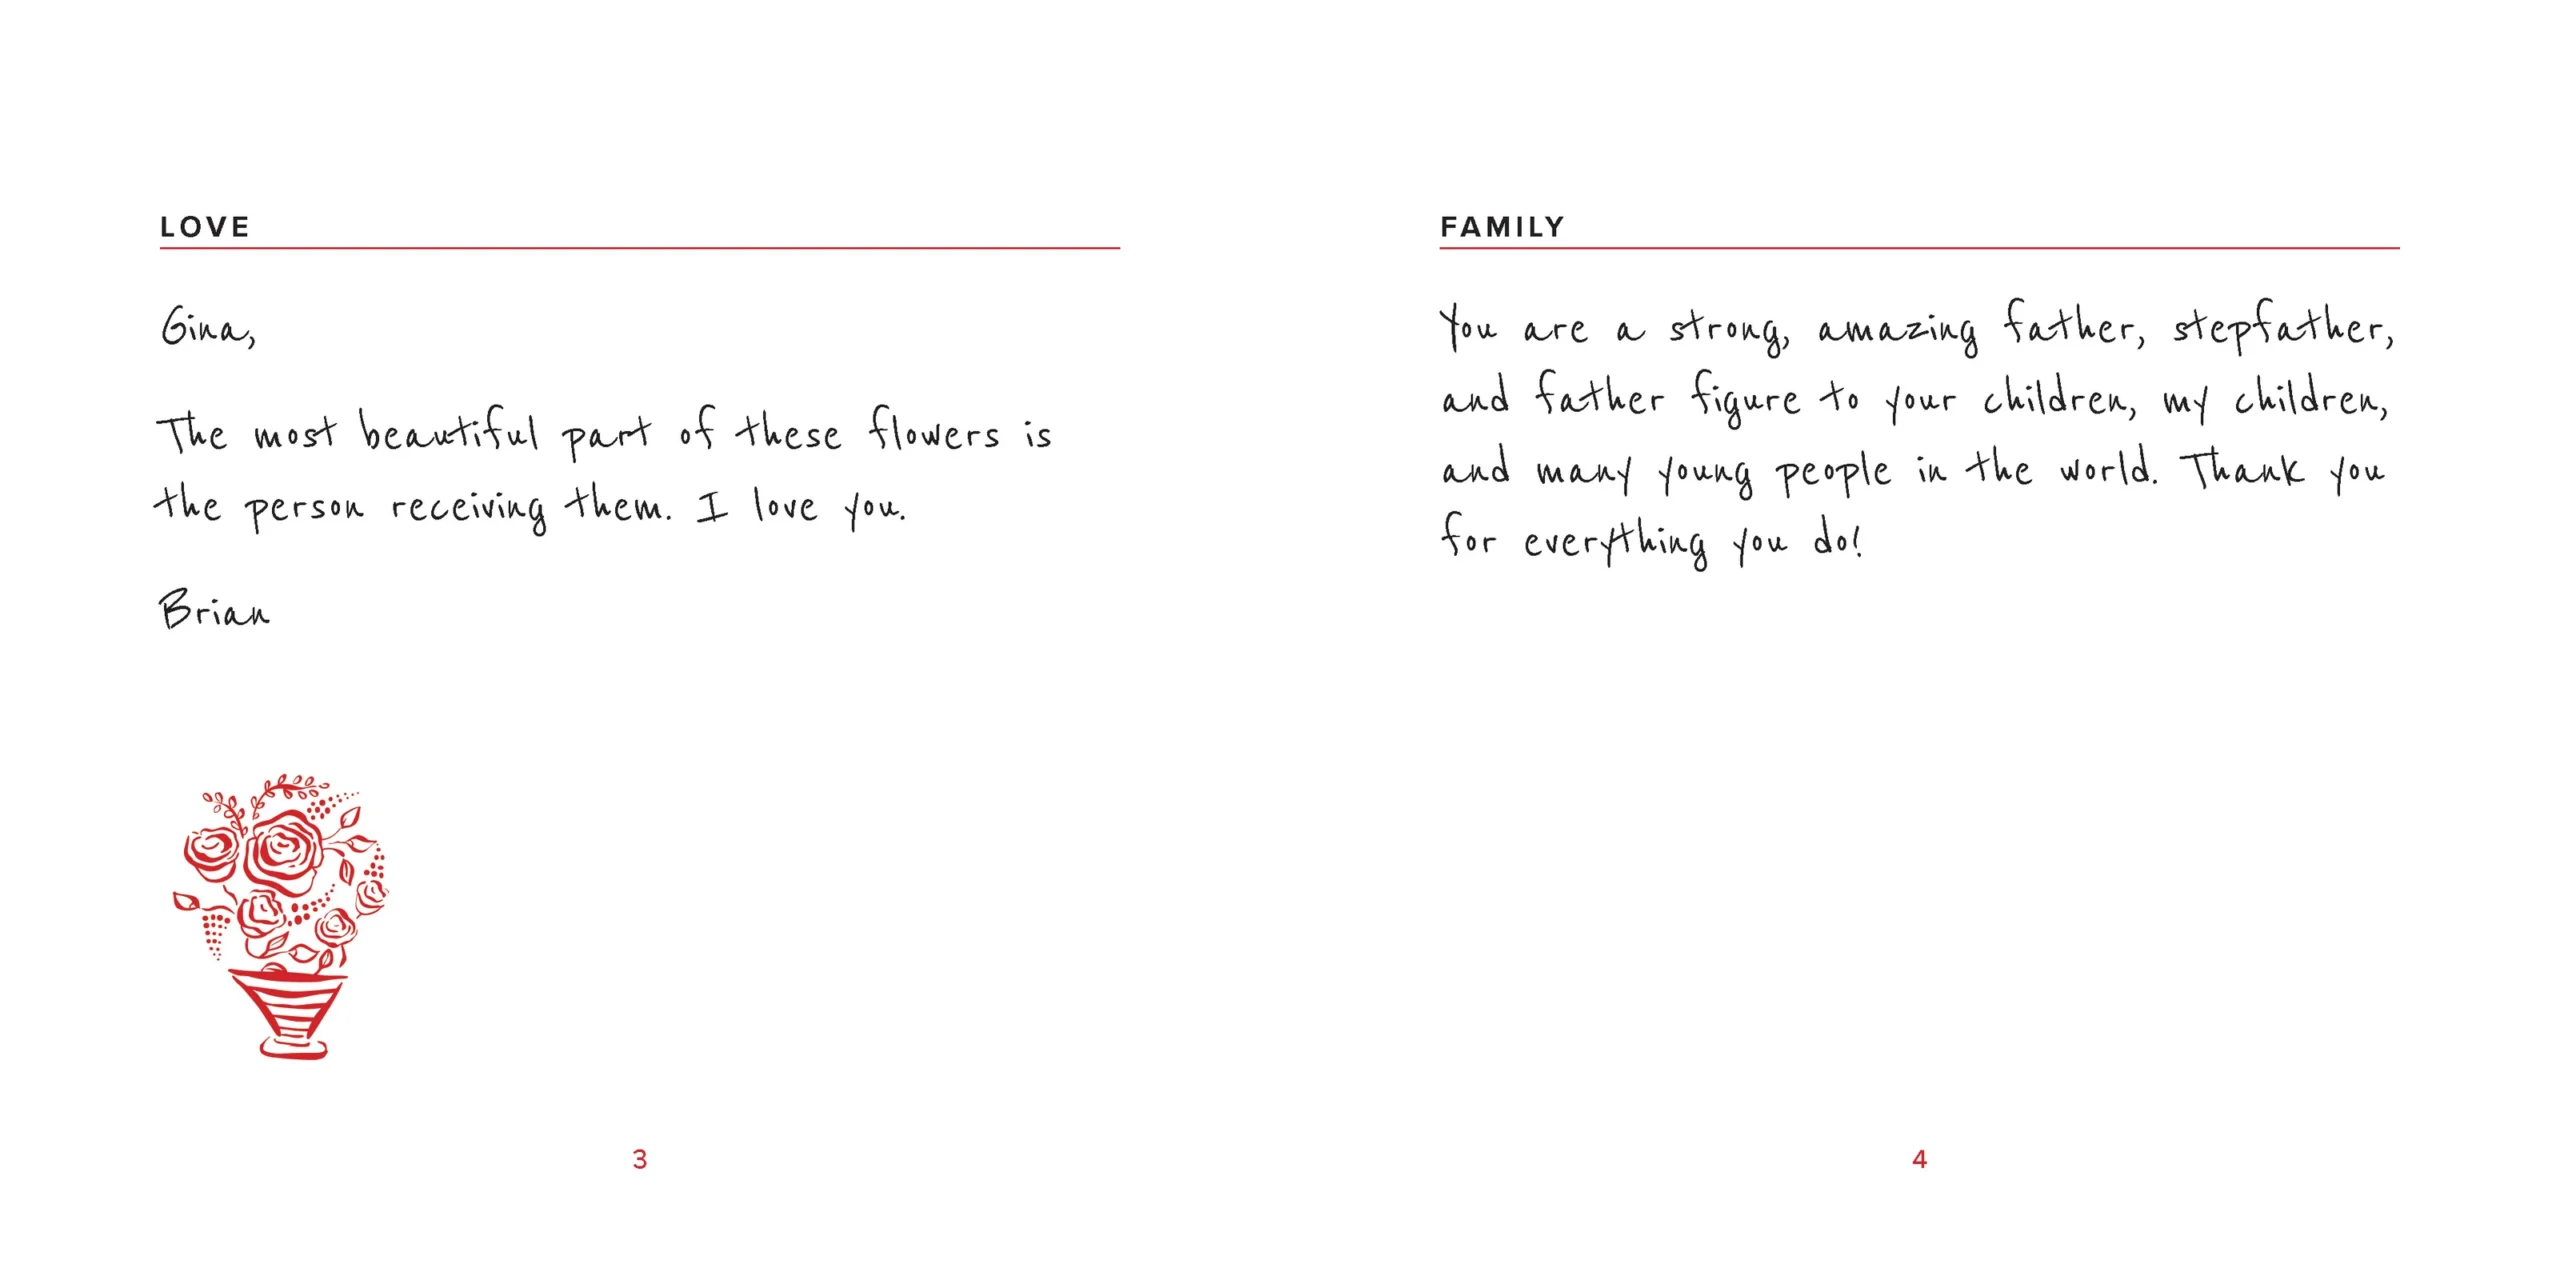 LOVE
Gina,
The most beautiful part of these flowers is
the person receiving them. I love you.
Brian
3
FAMILY
You are a strong, amazing father, stepfather,
and father figure to your children, my children,
and many young people in the world. Thank you
for everything you do!
4